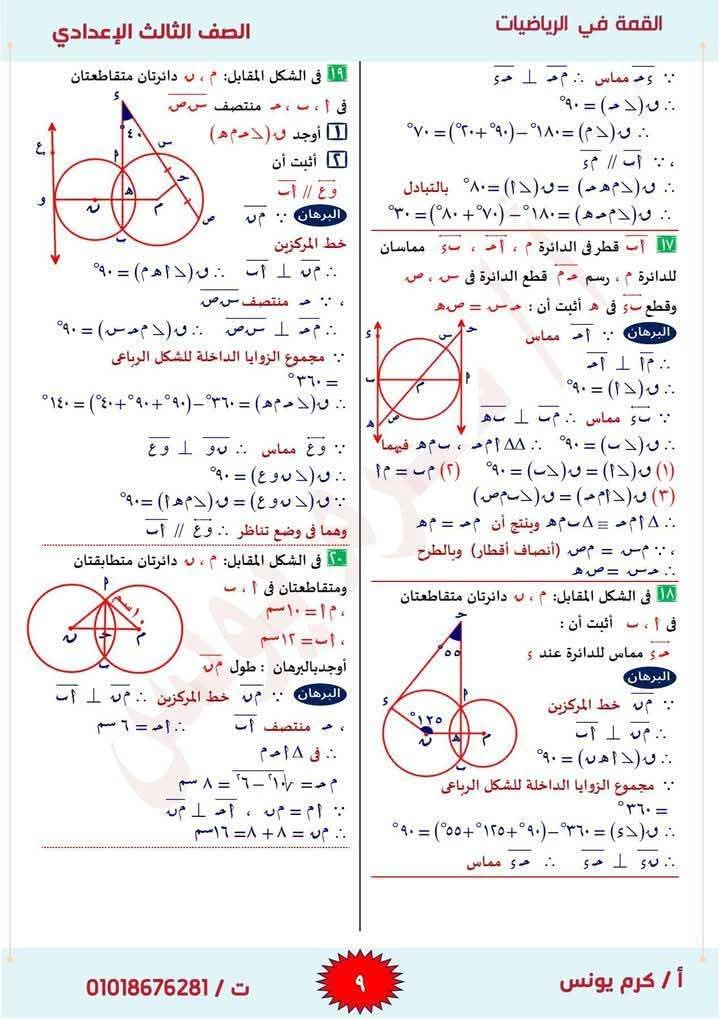 القمة في الرياضيات
الصف الثالث الإعدادي
∵ ءحـ مماس ∴ مـحـ ⊥ حـء
∴ ق(∠حـ) = ٩٠°
∴ ق(∠م) = ١٨٠° − (٩٠° + ٢٠°) = ٧٠°
، ∵ أب // مء
∴ ق(∠مهحـ) = ق(∠أ) = ٨٠° بالتبادل
∴ ق(∠محـه) = ١٨٠° − (٧٠° + ٨٠°) = ٣٠°
١٧ أب قطر فى الدائرة م ، أحـ ، بء مماسان
للدائرة م ، رسم حـم قطع الدائرة فى س ، ص
وقطع بء فى ه أثبت أن : حـس = صه
البرهان ∵ أحـ مماس
∴ مأ ⊥ أحـ
∴ ق(∠أ) = ٩٠°
∵ بء مماس ∴ مب ⊥ به
∴ ق(∠ب) = ٩٠° ∴ ΔΔ أمحـ ، بمه فيهما
(١) ق(∠أ) = ق(∠ب) = ٩٠° (٢) مب = مأ
(٣) ق(∠أمحـ) = ق(∠بمص)
∴ Δ أمحـ ≡ Δ بمه وينتج أن محـ = مه
، ∵ مس = مص (أنصاف أقطار) وبالطرح
∴ حـس = صه
ء
س
حـ
ب
م
أ
ه
ص
١٨ فى الشكل المقابل: م ، ن دائرتان متقاطعتان
فى أ ، ب أثبت أن :
حـء مماس للدائرة عند ء
البرهان
∵ من خط المركزين
∴ من ⊥ أب
∴ ق(∠أهن) = ٩٠°
∵ مجموع الزوايا الداخلة للشكل الرباعى
= ٣٦٠°
∴ ق(∠ء) = ٣٦٠° − (٩٠° + ١٢٥° + ٥٥°) = ٩٠°
∴ نء ⊥ حـء ∴ حـء مماس
حـ
٥٥°
ء
أ
١٢٥°
ن
ه
م
ب
١٩ فى الشكل المقابل: م ، ن دائرتان متقاطعتان
فى أ ، ب ، حـ منتصف سص
١ أوجد ق(∠حـمه)
٢ أثبت أن
وع // أب
البرهان ∵ من
خط المركزين
∴ من ⊥ أب ∴ ق(∠أهم) = ٩٠°
، ∵ حـ منتصف سص
∴ محـ ⊥ سص ∴ ق(∠محـس) = ٩٠°
∵ مجموع الزوايا الداخلة للشكل الرباعى
= ٣٦٠°
∴ ق(∠حـمه) = ٣٦٠° − (٩٠° + ٩٠° + ٤٠°) = ١٤٠°
∵ وع مماس ∴ نو ⊥ وع
∴ ق(∠نوع) = ٩٠°
∵ ق(∠نوع) = ق(∠مهأ) = ٩٠°
وهما فى وضع تناظر ∴ وع // أب
ء
٤٠
س
ع
أ
حـ
و
ن
ه
م
ص
ب
٢٠ فى الشكل المقابل: م ، ن دائرتان متطابقتان
ومتقاطعتان فى أ ، ب
، مأ = ١٠سم
، أب = ١٢سم
أوجدبالبرهان : طول من
البرهان ∵ من خط المركزين ∴ من ⊥ أب
، حـ منتصف أب ∴ أحـ = ٦ سم
∴ فى Δ أحـم
محـ = √١٠² − ٦² = ٨ سم
∵ أم = من ، أحـ ⊥ من
∴ من = ٨ + ٨ = ١٦سم
أ
١٠سم
ن
حـ
م
ب
أ / كرم يونس
٩
ت / 01018676281